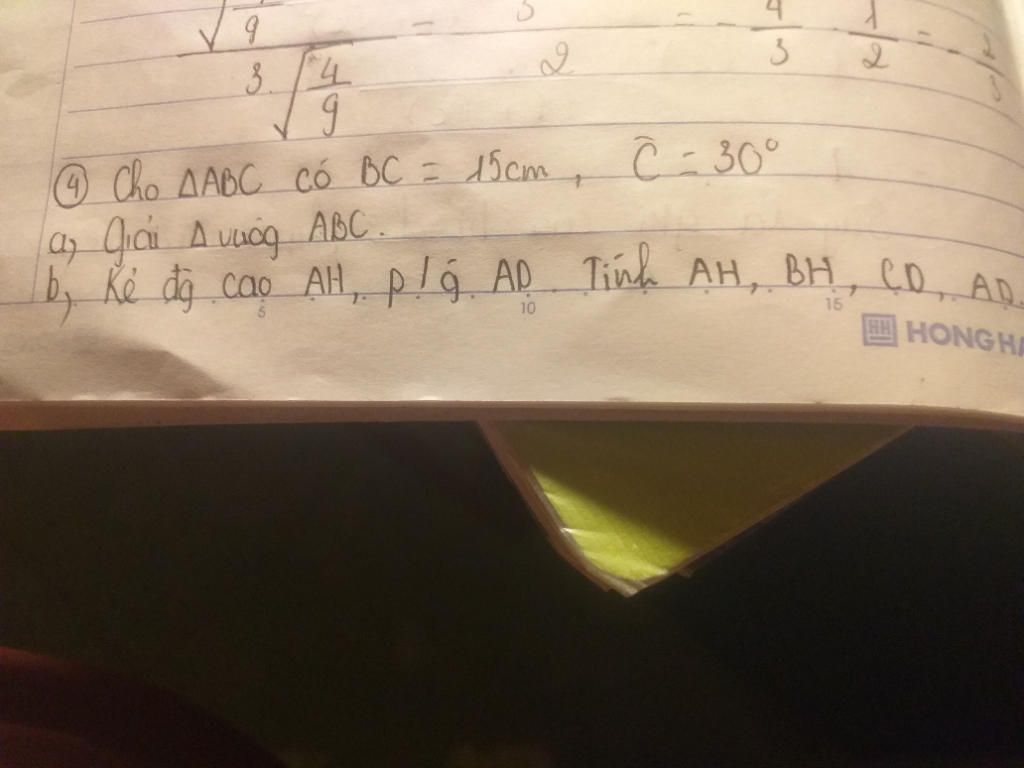 √ 9 = 3 = - 4/3 . 1/2 = - 2/3
3.√4/9 2
④ Cho ΔABC có BC = 15cm, Ĉ = 30°
a, Giải Δ vuôg ABC.
b, Kẻ đg cao AH, p/g AD. Tính AH, BH, CD, AD.
5 10 15
HH HONG HA